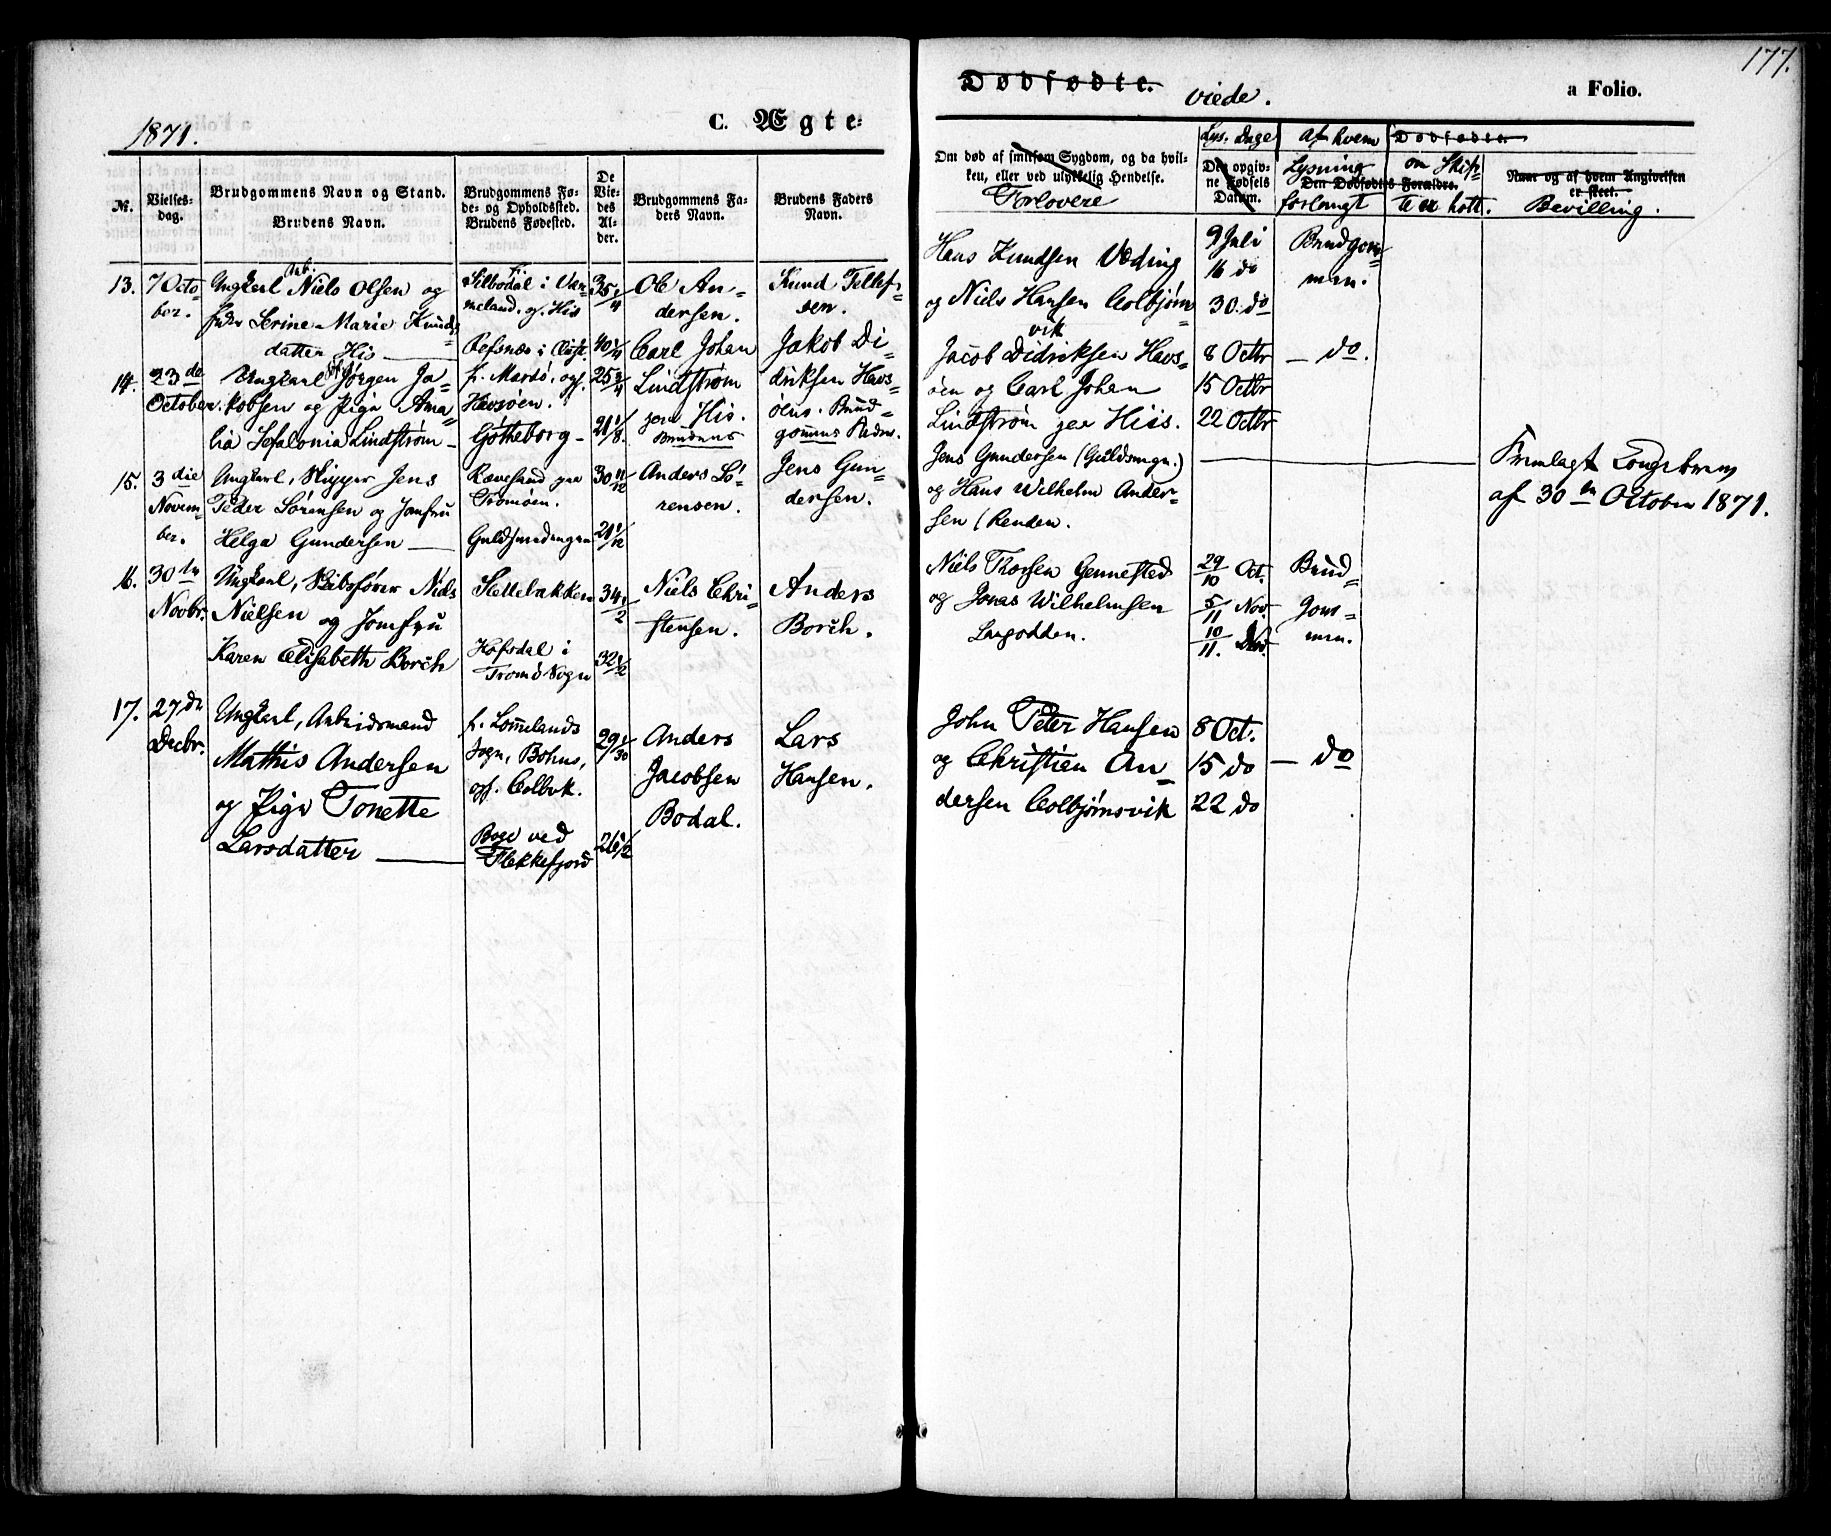 177.
1871.
C. Ægte-
Dødfødte. viede.
a Folio.
№.
Vielses-
dag.
Brudgommens Navn og Stand.
Brudens Navn.
Brudgommens Fø-
de- og Opholdssted.
Brudens Fødested.
De
Vie-
des
Al-
der.
Brudgommens Fa-
ders Navn.
Brudens Faders
Navn.
Om død af smitsom Sygdom, og da hvil-
ken, eller ved ulykkelig Hendelse.
Forlovere
Lys. Dage
Den opgiv-
ne Fødsels
Datum.
af hvem
Lysning
forlangt
Dødfødte
Den Dødfødtes Forældre.
om Skif-
te er holt.
Navn og af hvem Angivelsen
er skeet.
Bevilling.
13.
7 Octo-
ber.
Ungkarl Arb. Niels Olsen og
Serine Marie Knuds-
datter His
Silbodal i Ver-
meland, og His
35 1/4
Ole An-
dersen.
Knud Tellef-
sen.
Hans Knudsen Væding
og Niels Hansen Colbjørns-
vik
9 Juli
16 do
30. do
Brudgom-
men.
14.
23de
October.
Ungkarl Jørgen Ja-
kobsen og Pige Ama-
lia Sefalonia Lindstrøm
f. Mardö, og f.
Havsøen.
Gøtheborg
25 3/4
21 1/8.
Carl Johan
Lindstrøm
His.
Brudens
Jakob Di-
driksen Havs-
öens. Brud-
gommens Fader.
Jacob Didriksen Havs-
öen og Carl Johan
Lindstrøm paa Hiis.
8 Octbr
15 Octbr
22 Octbr
do.
15.
3die
Novem-
ber.
Ungkarl, Skipper Jens
Peder Sörensen og Jomfru
Helga Gundersen
Rævesand paa
Tromøen.
Guldsmedengen
30 11/12
21 1/12
Anders Sö-
rensen.
Jens Gun-
dersen.
Jens Gundersen (Guldsmgn.)
og Hans Wilhelm Ander-
sen (Renden.
Fremlagt Kongebrev
af 30te October 1871.
16.
30te
Novbr.
Ungkarl, Skibsfører Niels
Nielsen og Jomfru
Karen Elisabeth Borch
Slettebakken
Hofsdal i
Tromö Sogn
34 1/2
32 1/2
Niels Chri-
stensen.
Anders
Borch.
Niels Thorsen Gennested
og Jonas Wilhelmsen
Langodden.
29/10 Oct.
5/11 Nov.
10/11. Nov.
Brud-
gom-
men.
17.
27de
Decbr.
Ungkarl, Arbeidsmand
Mathis Andersen
og Pige Tonette
Larsdatter
f. Lommelands
Sogn, Bohus,
og f. Colbvk.
Boge ved
Flekkefjord
29 1/30
26 1/2
Anders
Jacobsen
Bodal.
Lars
Hansen.
John Peter Hansen
og Christien An-
dersen Colbjørnsvik
8 Oct.
15 do
22 do
do